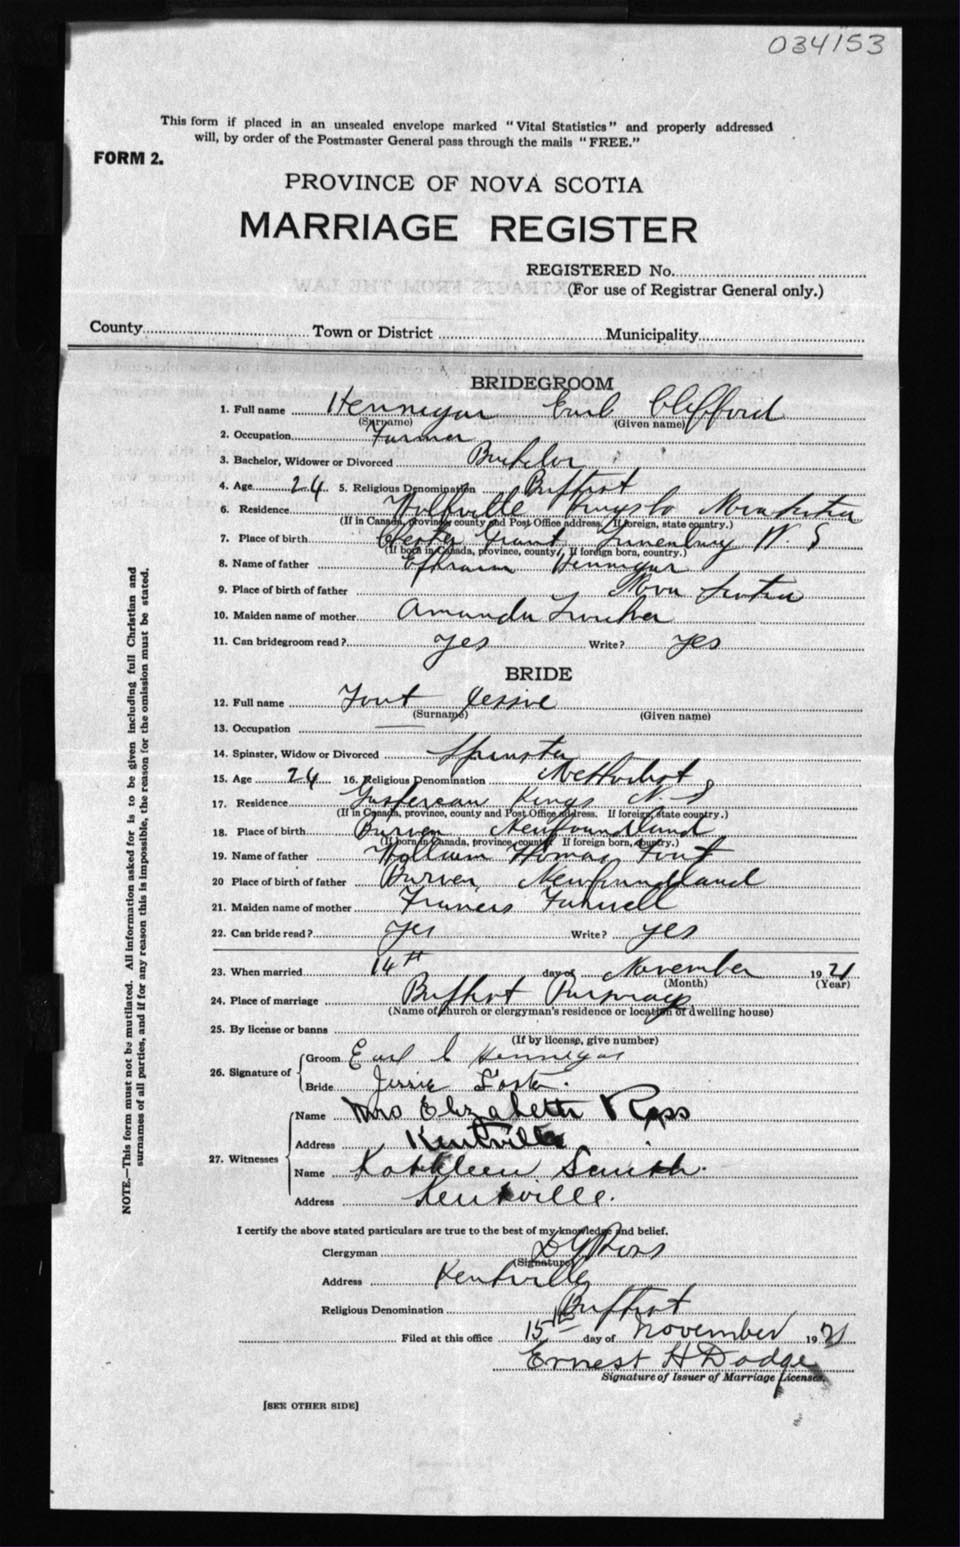 034153
This form if placed in an unsealed envelope marked "Vital Statistics" and properly addressed
will, by order of the Postmaster General pass through the mails "FREE."
FORM 2.
PROVINCE OF NOVA SCOTIA
MARRIAGE REGISTER
REGISTERED No.
(For use of Registrar General only.)
County Town or District Municipality
BRIDEGROOM
1. Full name Hennigar Earl Clifford
(Surname) (Given name)
2. Occupation Farmer
3. Bachelor, Widower or Divorced Bachelor
4. Age 24 5. Religious Denomination Baptist
6. Residence Wolfville Kings Co Nova Scotia
(If in Canada, province, county and Post Office address. If foreign, state country.)
7. Place of birth Chester Grant Lunenburg N. S
(If born in Canada, province, county. If foreign born, country.)
8. Name of father Ephraim Hennigar
9. Place of birth of father Nova Scotia
10. Maiden name of mother Amanda
11. Can bridegroom read? yes Write? yes
BRIDE
12. Full name Jessie
(Surname) (Given name)
13. Occupation
14. Spinster, Widow or Divorced Spinster
15. Age 24 16. Religious Denomination Methodist
17. Residence Gaspereau Kings N. S
(If in Canada, province, county and Post Office address. If foreign, state country.)
18. Place of birth Newfoundland
(If born in Canada, province, county. If foreign born, country.)
19. Name of father William Thomas
20 Place of birth of father Newfoundland
21. Maiden name of mother Francis
22. Can bride read? yes Write? yes
23. When married 14th day of November 1921
(Month) (Year)
24. Place of marriage Baptist Parsonage
(Name of church or clergyman's residence or location of dwelling house)
25. By license or banns
(If by license, give number)
26. Signature of Groom Earl C Hennigar
Bride Jessie
27. Witnesses Name Mrs Elizabeth Ross
Address Kentville
Name Kathleen Smith.
Address Kentville.
I certify the above stated particulars are true to the best of my knowledge and belief.
Clergyman Ross
(Signature)
Address Kentville
Religious Denomination Baptist
Filed at this office 15th day of November 1921
Ernest H Dodge
Signature of Issuer of Marriage Licenses.
[SEE OTHER SIDE]
NOTE.—This form must not be mutilated. All information asked for is to be given including full Christian and
surnames of all parties, and if for any reason this is impossible, the reason for the omission must be stated.